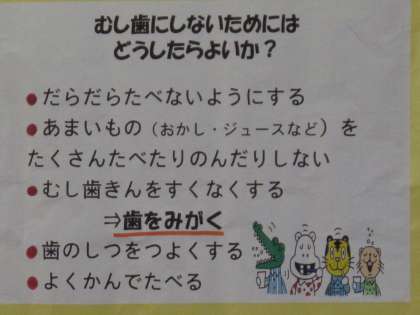 むし歯にしないためには
どうしたらよいか？
●だらだらたべないようにする
●あまいもの（おかし・ジュースなど）を
たくさんたべたりのんだりしない
●むし歯きんをすくなくする
⇒歯をみがく
●歯のしつをつよくする
●よくかんでたべる